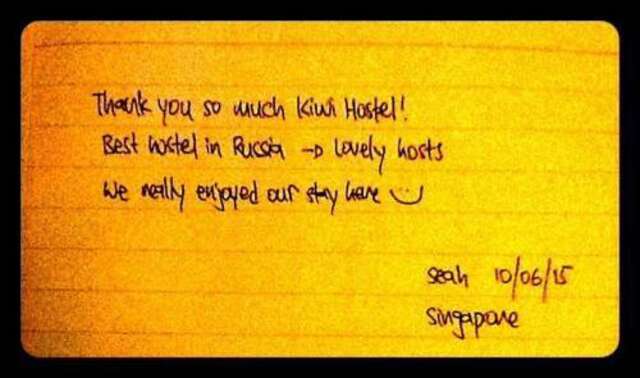 Thank you so much Kiwi Hostel!
Best hostel in Russia → lovely hosts
We really enjoyed our stay here :)
Seah 10/06/15
Singapore